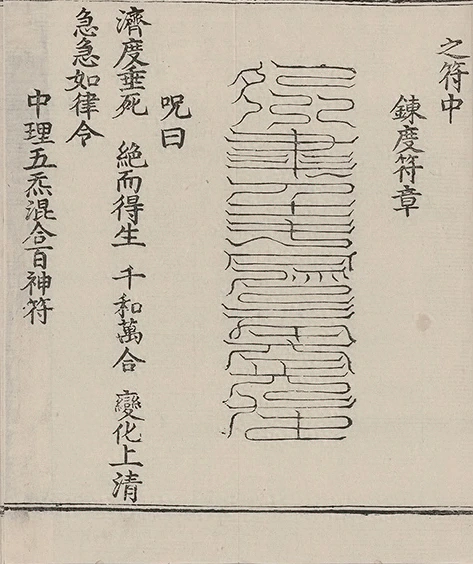 之符中
鍊度符章
呪曰
濟度垂死 絕而得生 千和萬合 變化上清
急急如律令
中理五炁混合百神符